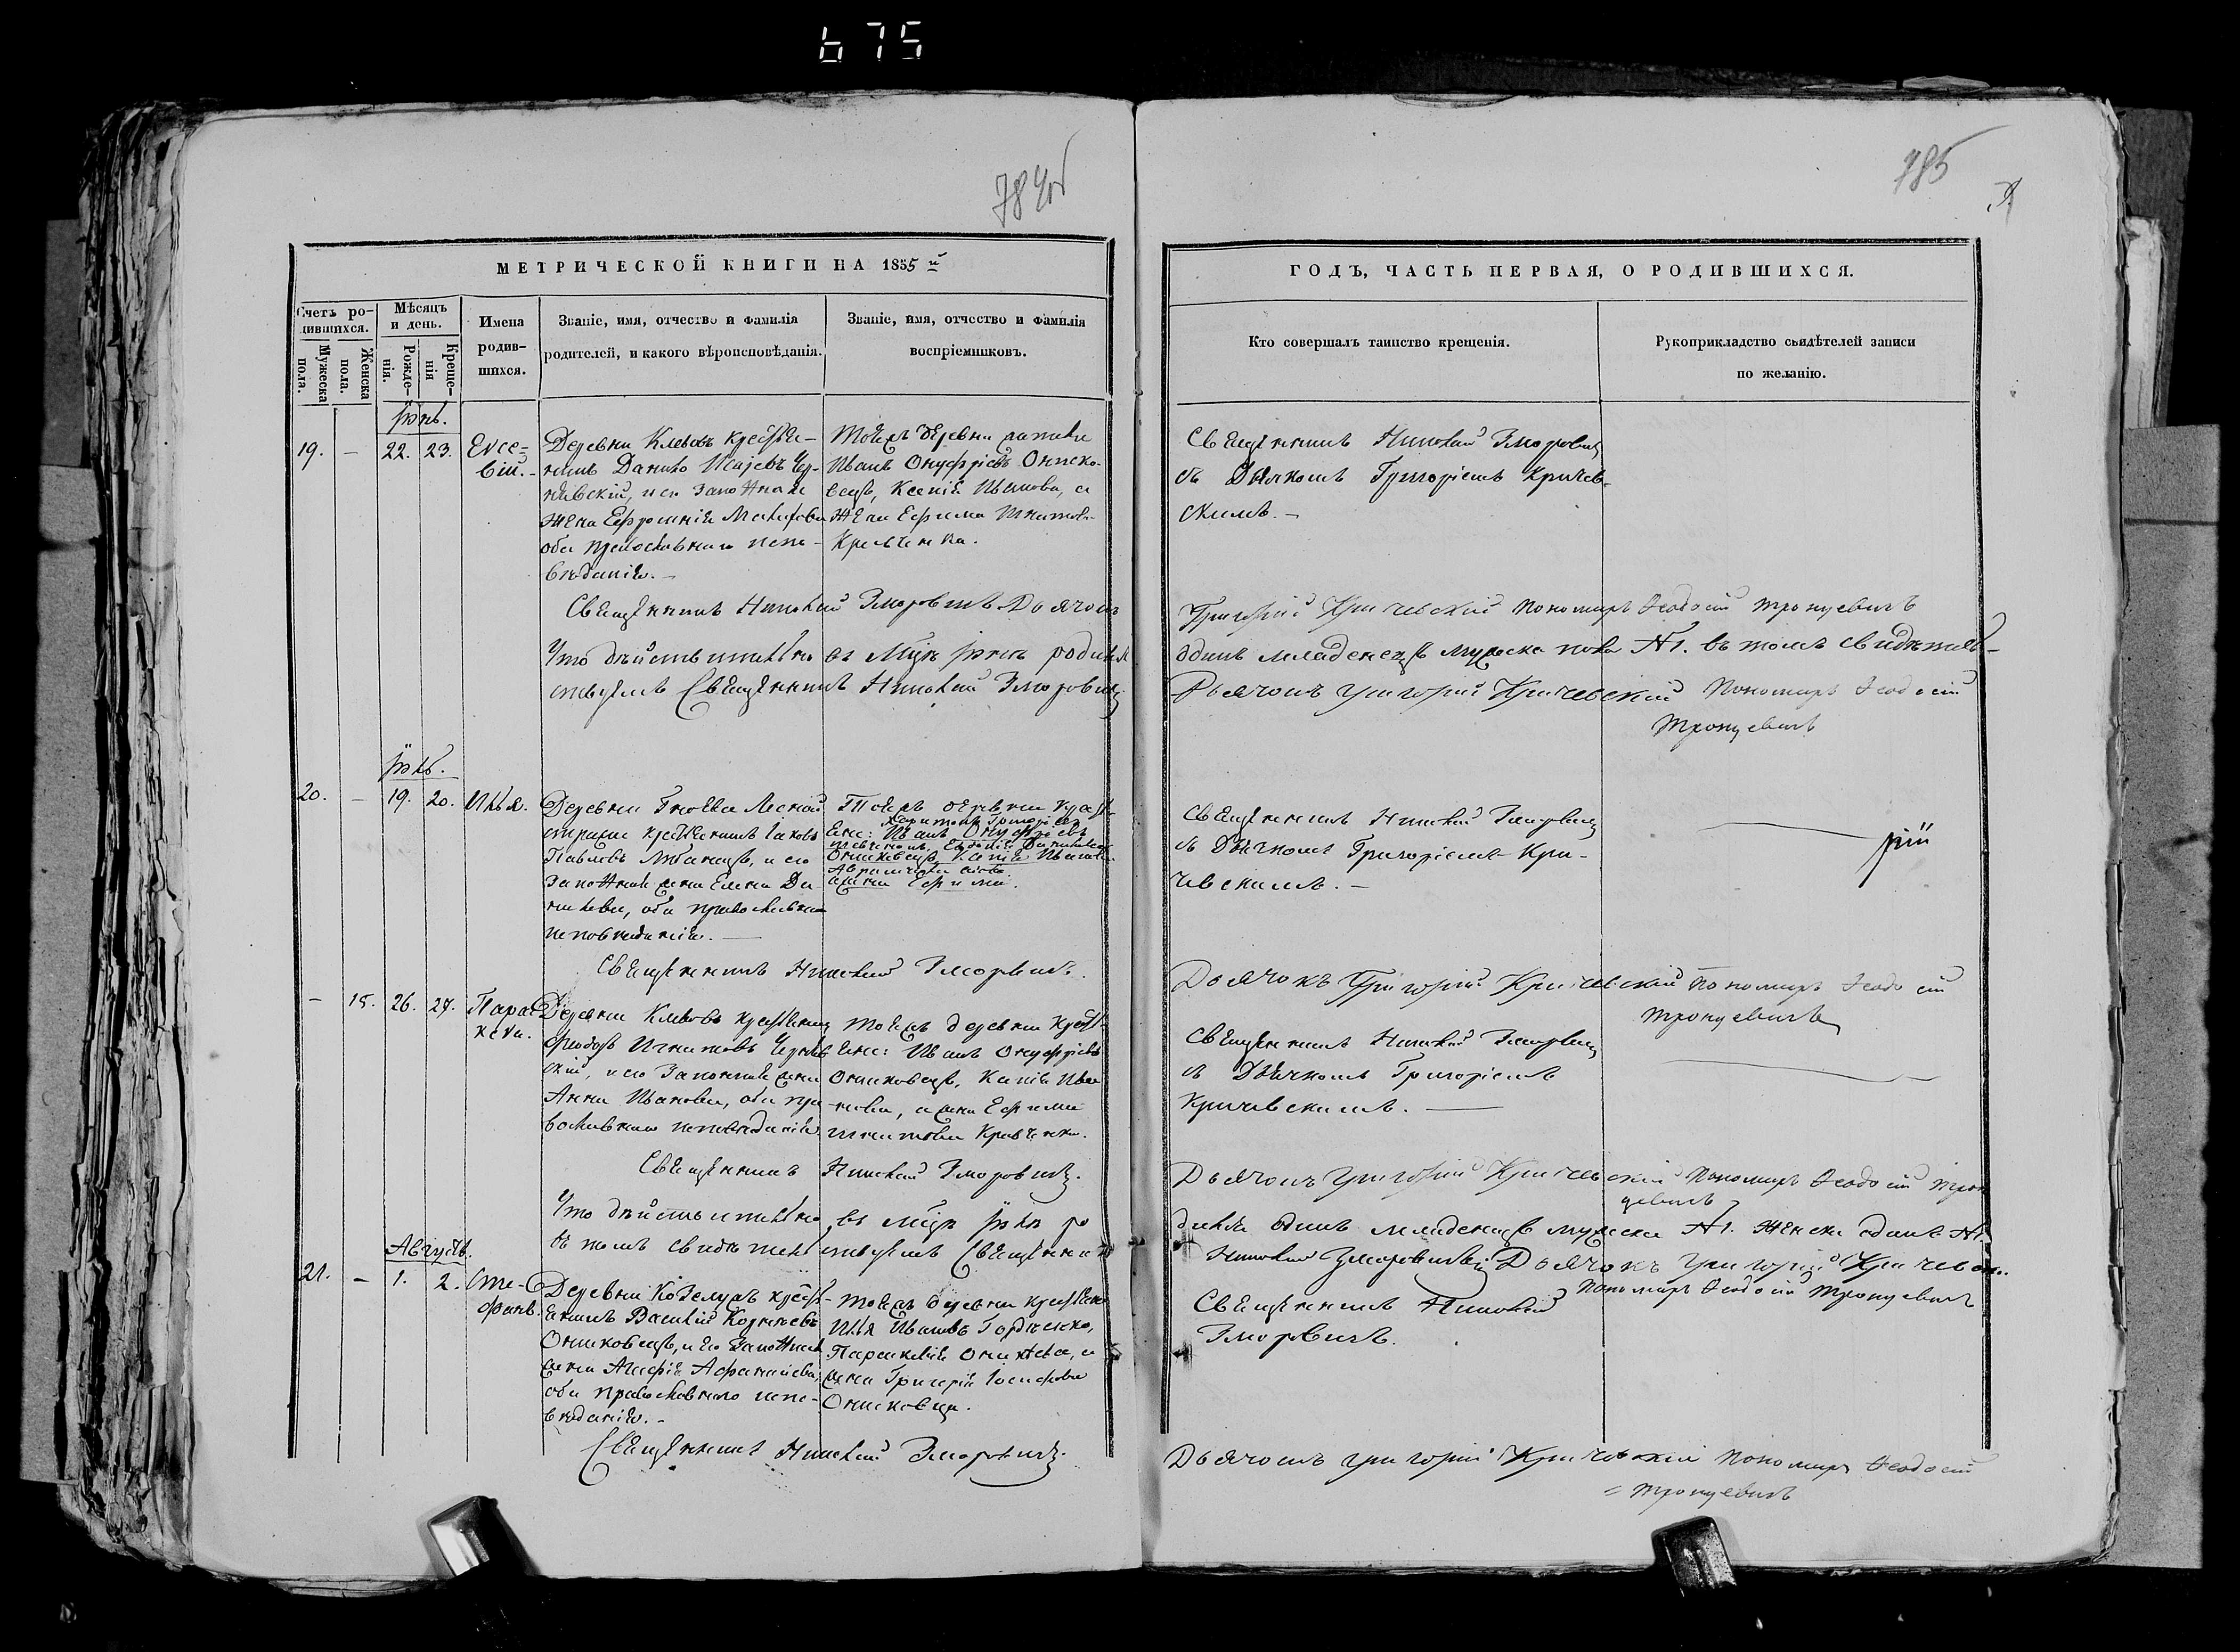 675
784об
785
МЕТРИЧЕСКОЙ КНИГИ НА 1855й
ГОДЪ, ЧАСТЬ ПЕРВАЯ, О РОДИВШИХСЯ.
Счетъ ро-
дившихся.
Мужеска
пола.
Женска
пола.
Мѣсяцъ
и день.
Рожде-
нія.
Креще-
нія
Имена
родив-
шихся.
Званіе, имя, отчество и фамилія
родителей, и какого вѣроисповѣданія.
Званіе, имя, отчество и фамилія
воспріемниковъ.
Кто совершалъ таинство крещенія.
Рукоприкладство свидѣтелей записи
по желанію.
Іюнь.
19. – 22. 23. Евсе-
вій.
Деревни Клевовъ крестья-
нинъ Данило Исаевъ Чер-
нявскій, и его законная
жена Ефросинія
оба православнаго испо-
вѣданія.
Тоежъ деревни
Иванъ Онуфріевъ Ониско-
вецъ, Ксенія Иванова,
жена Ефима Игнатова
Кравченка.
Священникъ Николай Зморовичъ
съ Дьячкомъ Григоріемъ Кричев-
скимъ.
Священникъ Николай Зморовичъ Дьячокъ
Григорій Кричевскій Пономарь Феодосій Тронцевичъ
Что дѣйствительно въ Мцѣ Іюнѣ родился
одинъ младенецъ мужеска пола №1. въ томъ свидѣтель-
ствуемъ Священникъ Николай Зморовичъ
Дьячокъ Григорій Кричевскій Пономарь Феодосій
Тронцевичъ
Іюль.
20. – 19. 20. Илья.
Деревни Гноева Лесной
стражи крестьянинъ Іаковъ
Павловъ и его
законная жена Елена Да
нилова, оба православнаго
исповѣданія.
Тоежъ деревни крест-
Харитонъ Григоріев
яне: Иванъ Онуфріевъ
Онисковецъ, Ксенія Иванова
жена Ефима.
Священникъ Николай Зморовичъ
съ Дьячкомъ Григоріемъ Кри-
чевскимъ.
Священникъ Николай Зморовичъ.
Дьячокъ Григорій Кричевскій Пономарь Феодосій
Тронцевичъ
– 15. 26. 27. Парас
кева.
Деревни Клевовъ крестьянинъ
Феодоръ Игнатовъ Черняв
скій, и его Законная жена
Анна Иванова, оба пра
вославнаго исповѣданія.
Тоежъ деревни крест-
яне: Иванъ Онуфріевъ
Онисковецъ, Ксенія Ива
нова, жена Ефима
Игнатова Кравченка.
Священникъ Николай Зморовичъ
съ Дьячкомъ Григоріемъ
Кричевскимъ.
Священникъ Николай Зморовичъ.
Дьячокъ Григорій Кричевскій Пономарь Феодосій Трон
цевичъ
Что дѣйствительно въ Мцѣ Іюлѣ ро
дился одинъ младенецъ мужеска №1. женска одинъ №1.
въ томъ свидѣтельствуемъ Священникъ
Николай Зморовичъ Дьячокъ Григорій Кричевск..
Пономарь Феодосій Тронцевичъ
Августъ.
21. – 1. 2. Сте-
фанъ.
Деревни Козелужъ крест-
янинъ Василій Корнѣевъ
Онисковецъ, и его Законная
жена Агафія Афанасіева,
оба православнаго испо-
вѣданія.
Тоежъ деревни крестьяне
Илья Ивановъ Гордѣенко,
Параскевія
жена Григорія Іосифова
Онисковца.
Священникъ Николай
Зморовичъ.
Священникъ Николай Зморовичъ.
Дьячокъ Григорій Кричевскій Пономарь Феодосій
Тронцевичъ